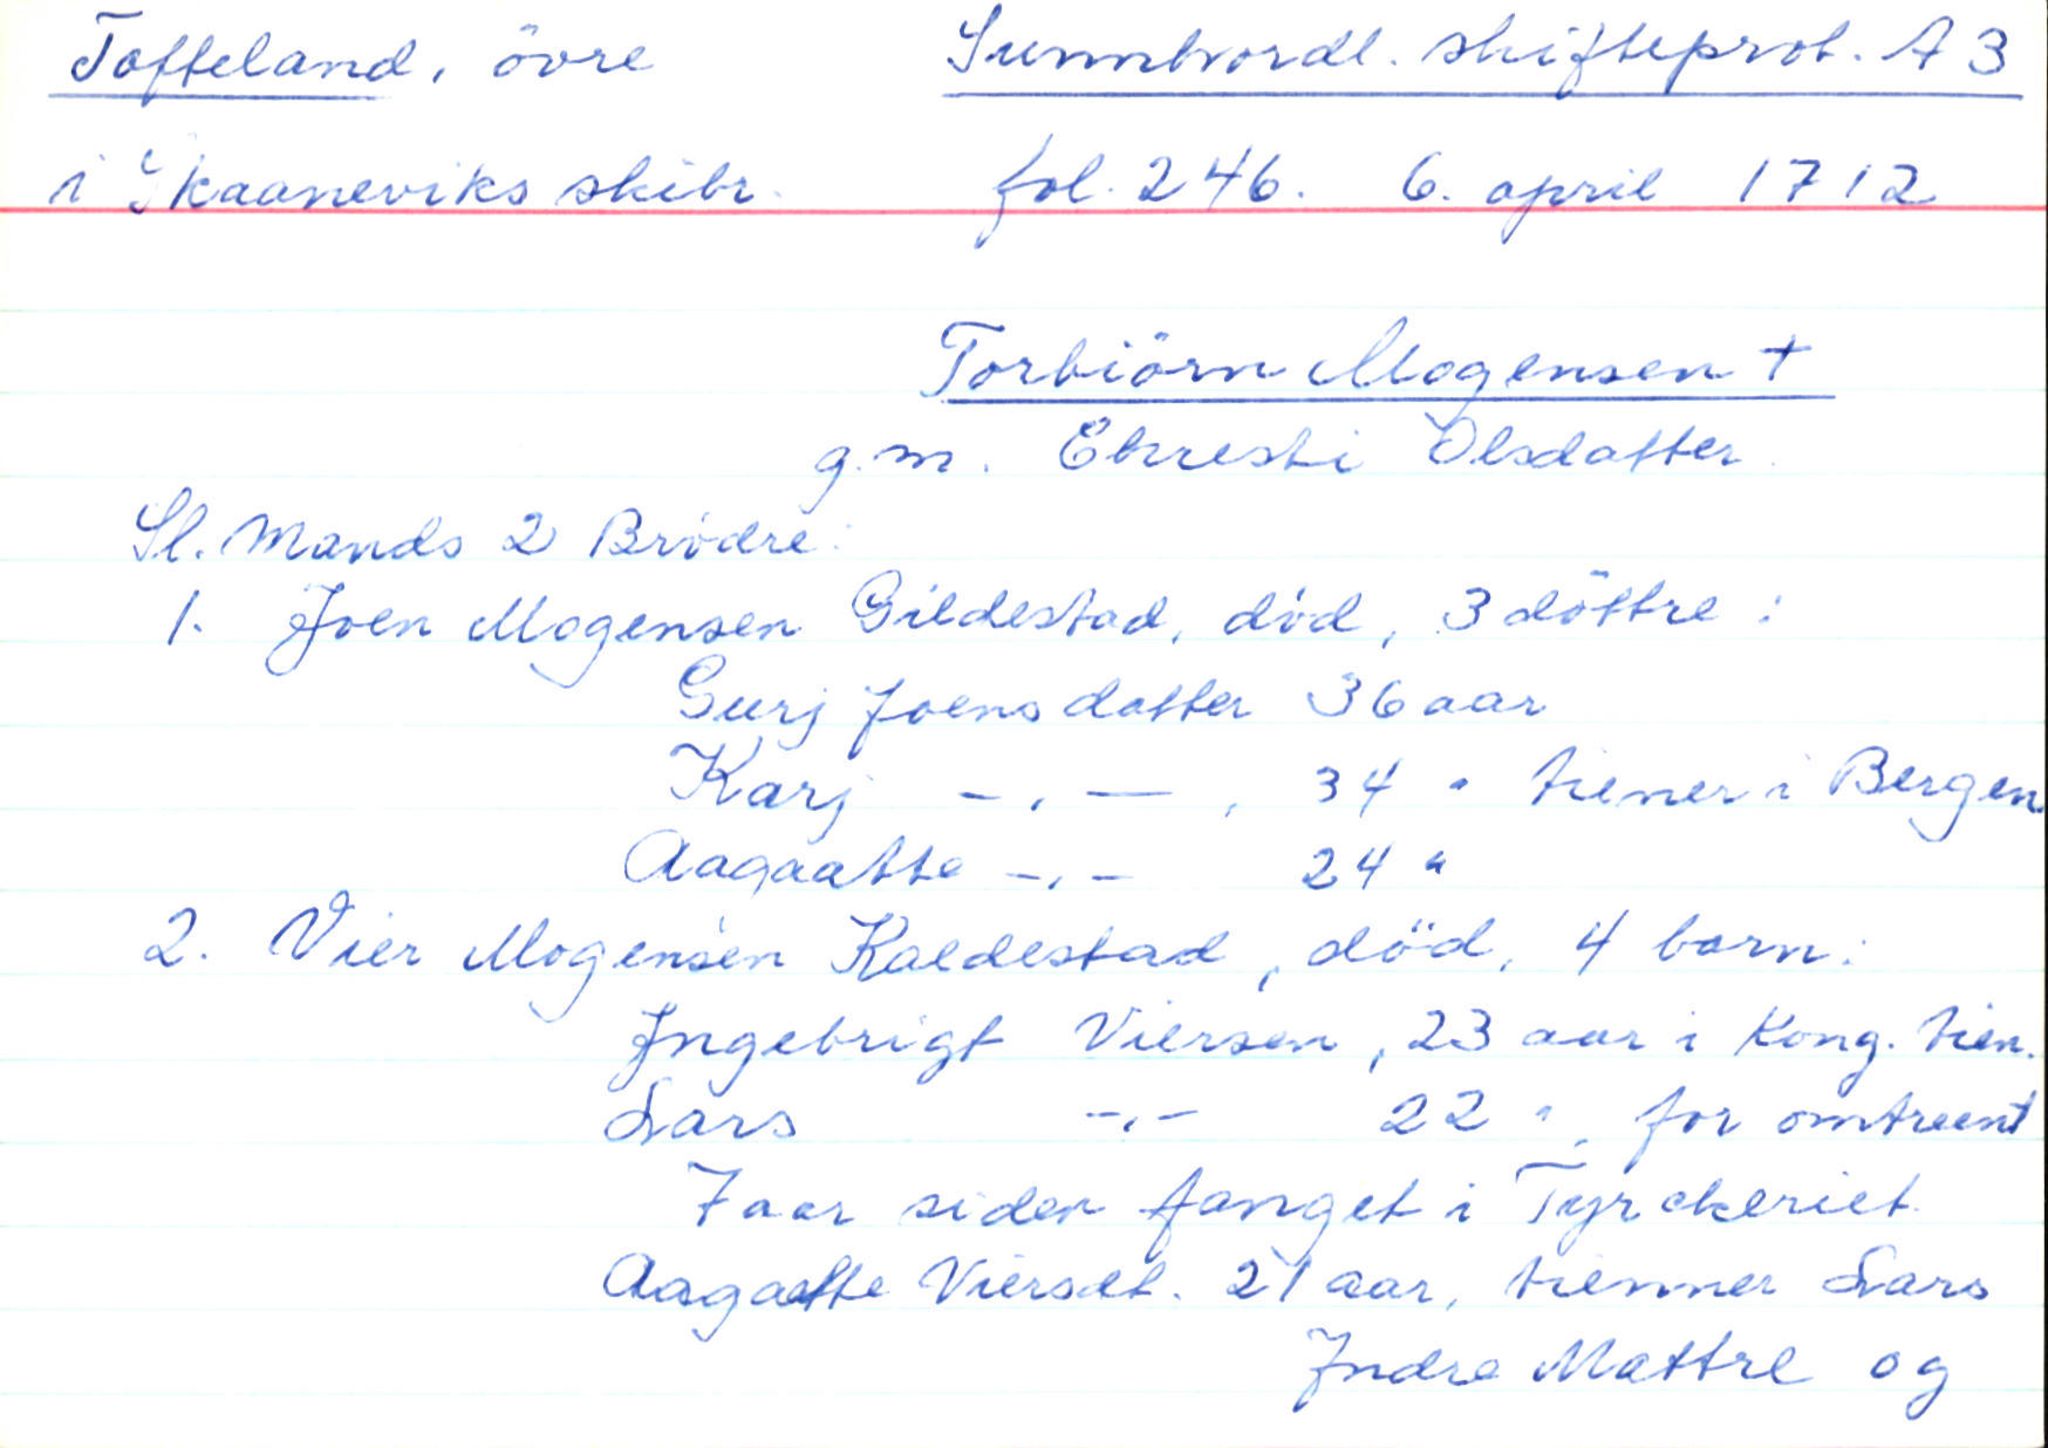 Tofteland, övre Sunnhordl. skifteprot. A 3
i Skaaneviks skibr. fol. 246. 6. april 1712
Torbiörn Mogensen †
g.m. Chresti Olsdatter
Sl. Mands 2 Brödre:
1. Joen Mogensen Gildestad, död, 3 döttre:
Gurj Joensdatter 36 aar
Karj -.-, 34 " tiener i Bergen
Aagaatte -.- 24 "
2. Vier Mogensen Kaldestad, död, 4 børn:
Ingebrigt Viersen, 23 aar i Kong. tien.
Lars -.- 22 ", for omtreent
7 aar siden fanget i Tyrckeriet.
Aagaatte Viersdt. 21 aar, tienner Lars
Indre Mattre og